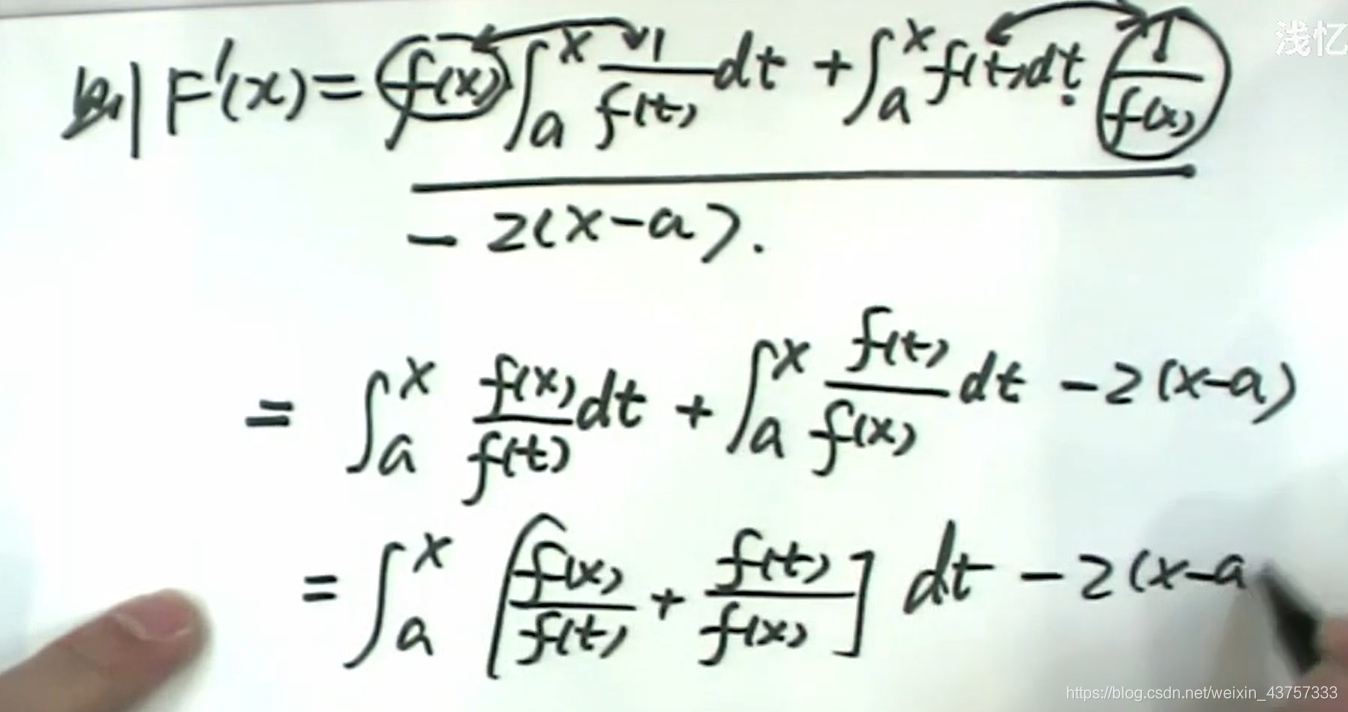 浅忆
则 F'(x) = f(x) ∫_a^x 1/f(t) dt + ∫_a^x f(t) dt · 1/f(x)
− 2(x−a).
= ∫_a^x f(x)/f(t) dt + ∫_a^x f(t)/f(x) dt − 2(x−a)
= ∫_a^x [f(x)/f(t) + f(t)/f(x)] dt − 2(x−a
https://blog.csdn.net/weixin_43757333